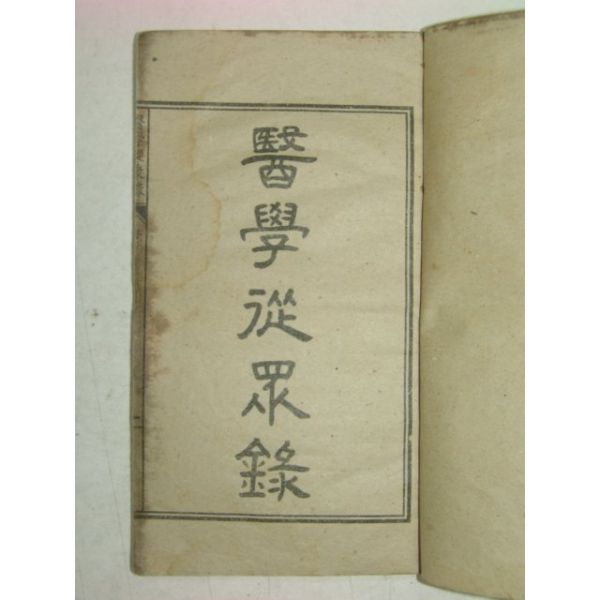 醫學從眾錄